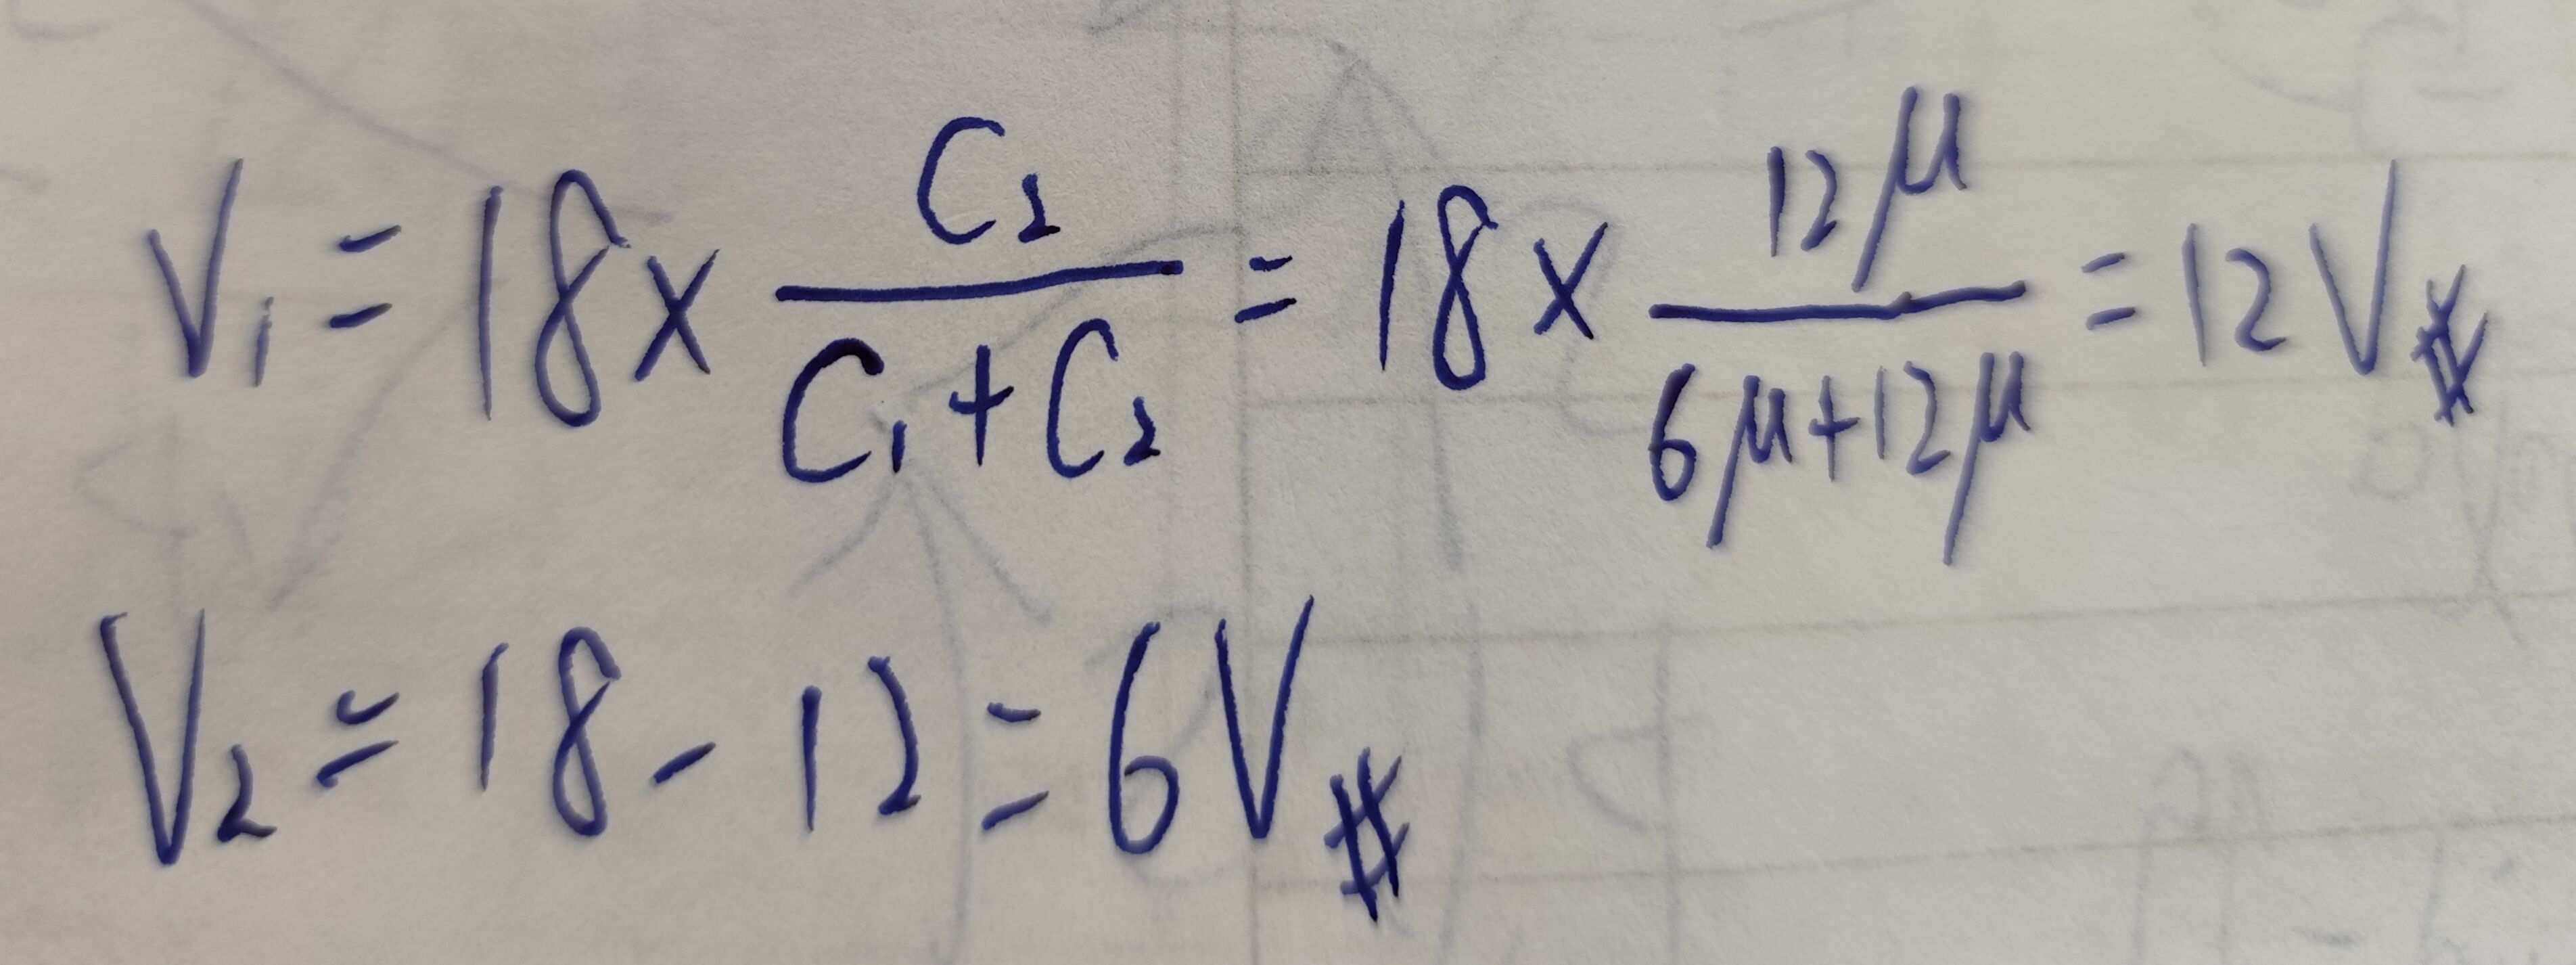 V₁ = 18 × C₂ / (C₁ + C₂) = 18 × 12μ / (6μ + 12μ) = 12 V #
V₂ = 18 - 12 = 6 V #